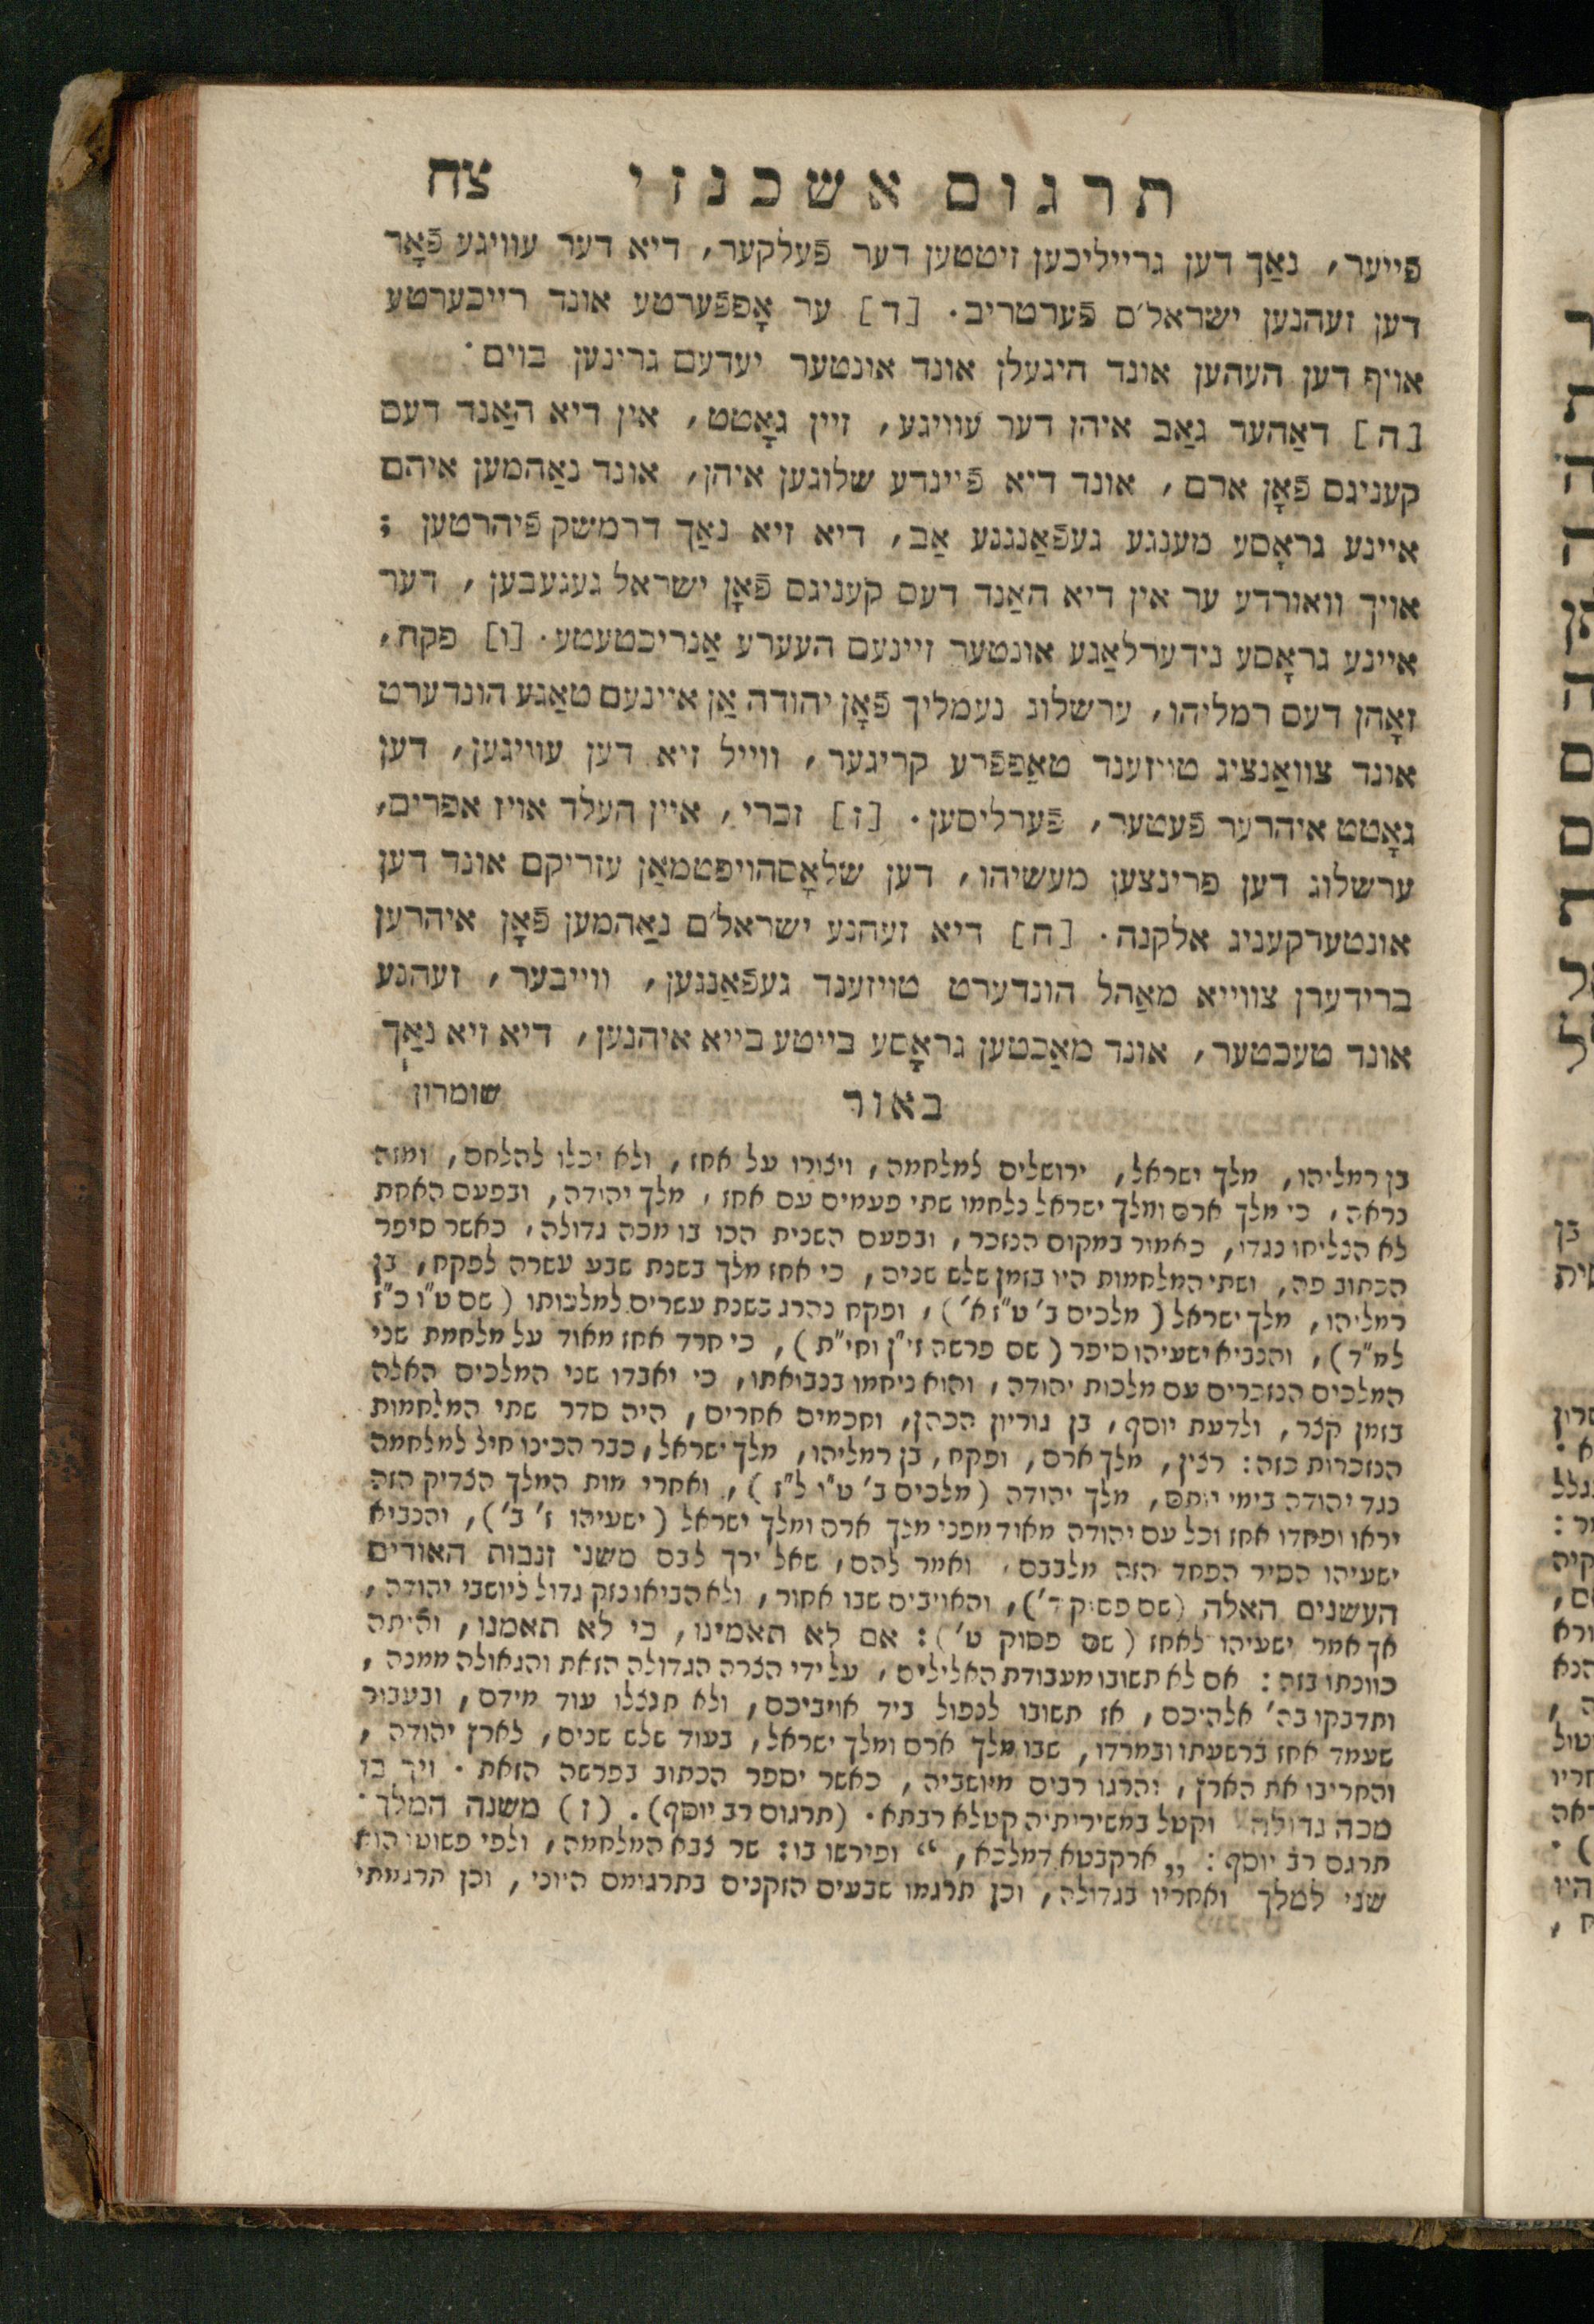 תרגום אשכנזי צח
פייער, נאַך דען גרייליכען זיטטען דער פֿעלקער, דיא דער עוויגע פֿאָר
דען זעהנען ישראל׳ם פֿערטריב. [ד] ער אָפּפֿערטע אונד רייכערטע
אויף דען העהען אונד היגעלן אונד אונטער יעדעם גרינען בוים׃
[ה] דאַהער גאַב איהן דער עוויגע, זיין גאָטט, אין דיא האַנד דעם
קעניגם פֿאָן ארם, אונד דיא פֿיינדע שלוגען איהן, אונד נאַהמען איהם
איינע גראָסע מענגע געפֿאַנגנע אַב, דיא זיא נאַך דרמשק פֿיהרטען ;
אויך וואורדע ער אין דיא האַנד דעם קעניגם פֿאָן ישראל געגעבען, דער
איינע גראָסע נידערלאַגע אונטער זיינעם העערע אַנריכטעטע. [ו] פקח,
זאָהן דעם רמליהו, ערשלוג נעמליך פֿאָן יהודה אַן איינעם טאַגע הונדערט
אונד צוואַנציג טויזענד טאַפּפֿרע קריגער, ווייל זיא דען עוויגען, דען
גאָטט איהרער פֿעטער, פֿערליסען. [ז] זכרי, איין העלד אויז אפרים,
ערשלוג דען פרינצען מעשיהו, דען שלאָסהויפטמאַן עזריקם אונד דען
אונטערקעניג אלקנה. [ח] דיא זעהנע ישראל׳ם נאַהמען פֿאָן איהרען
ברידערן צווייא מאַהל הונדערט טויזענד געפֿאַנגען, ווייבער, זעהנע
אונד טעכטער, אונד מאַכטען גראָסע בייטע בייא איהנען, דיא זיא נאַך
שומרון
באור
בן רמליהו, מלך ישראל, ירושלים למלחמה, ויצורו על אחז, ולא יכלו להלחם, ומזה
נראה, כי מלך ארם ומלך ישראל נלחמו שתי פעמים עם אחז, מלך יהודה, ובפעם האחת
לא הצליחו נגדו, כאמור במקום הנזכר, ובפעם השנית הכו בו מכה גדולה, כאשר סיפר
הכתוב פה, ושתי המלחמות היו בזמן שלש שנים, כי אחז מלך בשנת שבע עשרה לפקח, בן
רמליהו, מלך ישראל (מלכים ב׳ ט״ז א׳), ופקח נהרג בשנת עשרים למלכותו (שם ט״ו כ״ז
למ״ד), והנביא ישעיהו סיפר (שם פרשה זי״ן וחי״ת), כי חרד אחז מאוד על מלחמת שני
המלכים הנזכרים עם מלכות יהודה, והוא ניחמו בנבואתו, כי יאבדו שני המלכים האלה
בזמן קצר, ולדעת יוסף, בן גוריון הכהן, וחכמים אחרים, היה סדר שתי המלחמות
הנזכרות כזה: רצין, מלך ארם, ופקח, בן רמליהו, מלך ישראל, כבר הכינו חיל למלחמה
נגד יהודה בימי יותם, מלך יהודה (מלכים ב׳ ט״ו ל״ז), ואחרי מות המלך הצדיק הזה
יראו ופחדו אחז וכל עם יהודה מאוד מפני מלך ארם ומלך ישראל (ישעיהו ז׳ ב׳), והנביא
ישעיהו הסיר הפחד הזה מלבבם, ואמר להם, שאל ירך לבם משני זנבות האודים
העשנים האלה (שם פסוק ד׳), והאויבים שבו אחור, ולא הביאו נזק גדול ליושבי יהודה,
אך אמר ישעיהו לאחז (שם פסוק ט׳): אם לא תאמינו, כי לא תאמנו, והיתה
כוונתו בזה: אם לא תשובו מעבודת האלילים, על ידי הצרה הגדולה הזאת והגאולה ממנה,
ותדבקו בה׳ אלהיכם, אז תשובו לנפול ביד אויביכם, ולא תנצלו עוד מידם, ובעבור
שעמד אחז ברשעתו ובמרדו, שבו מלך ארם ומלך ישראל, בעוד שלש שנים, לארץ יהודה,
והחריבו את הארץ, והרגו רבים מיושביה, כאשר יספר הכתוב בפרשה הזאת. ויך בו
מכה גדולה וקטל במשיריתיה קטלא רבתא. (תרגום רב יוסף). (ז) משנה המלך.
תרגם רב יוסף: „ארקבטא דמלכא,“ ופירשו בו: שר צבא המלחמה, ולפי פשוטו הוא
שני למלך ואחריו בגדולה, וכן תרגמו שבעים הזקנים בתרגומם היוני, וכן תרגמתי